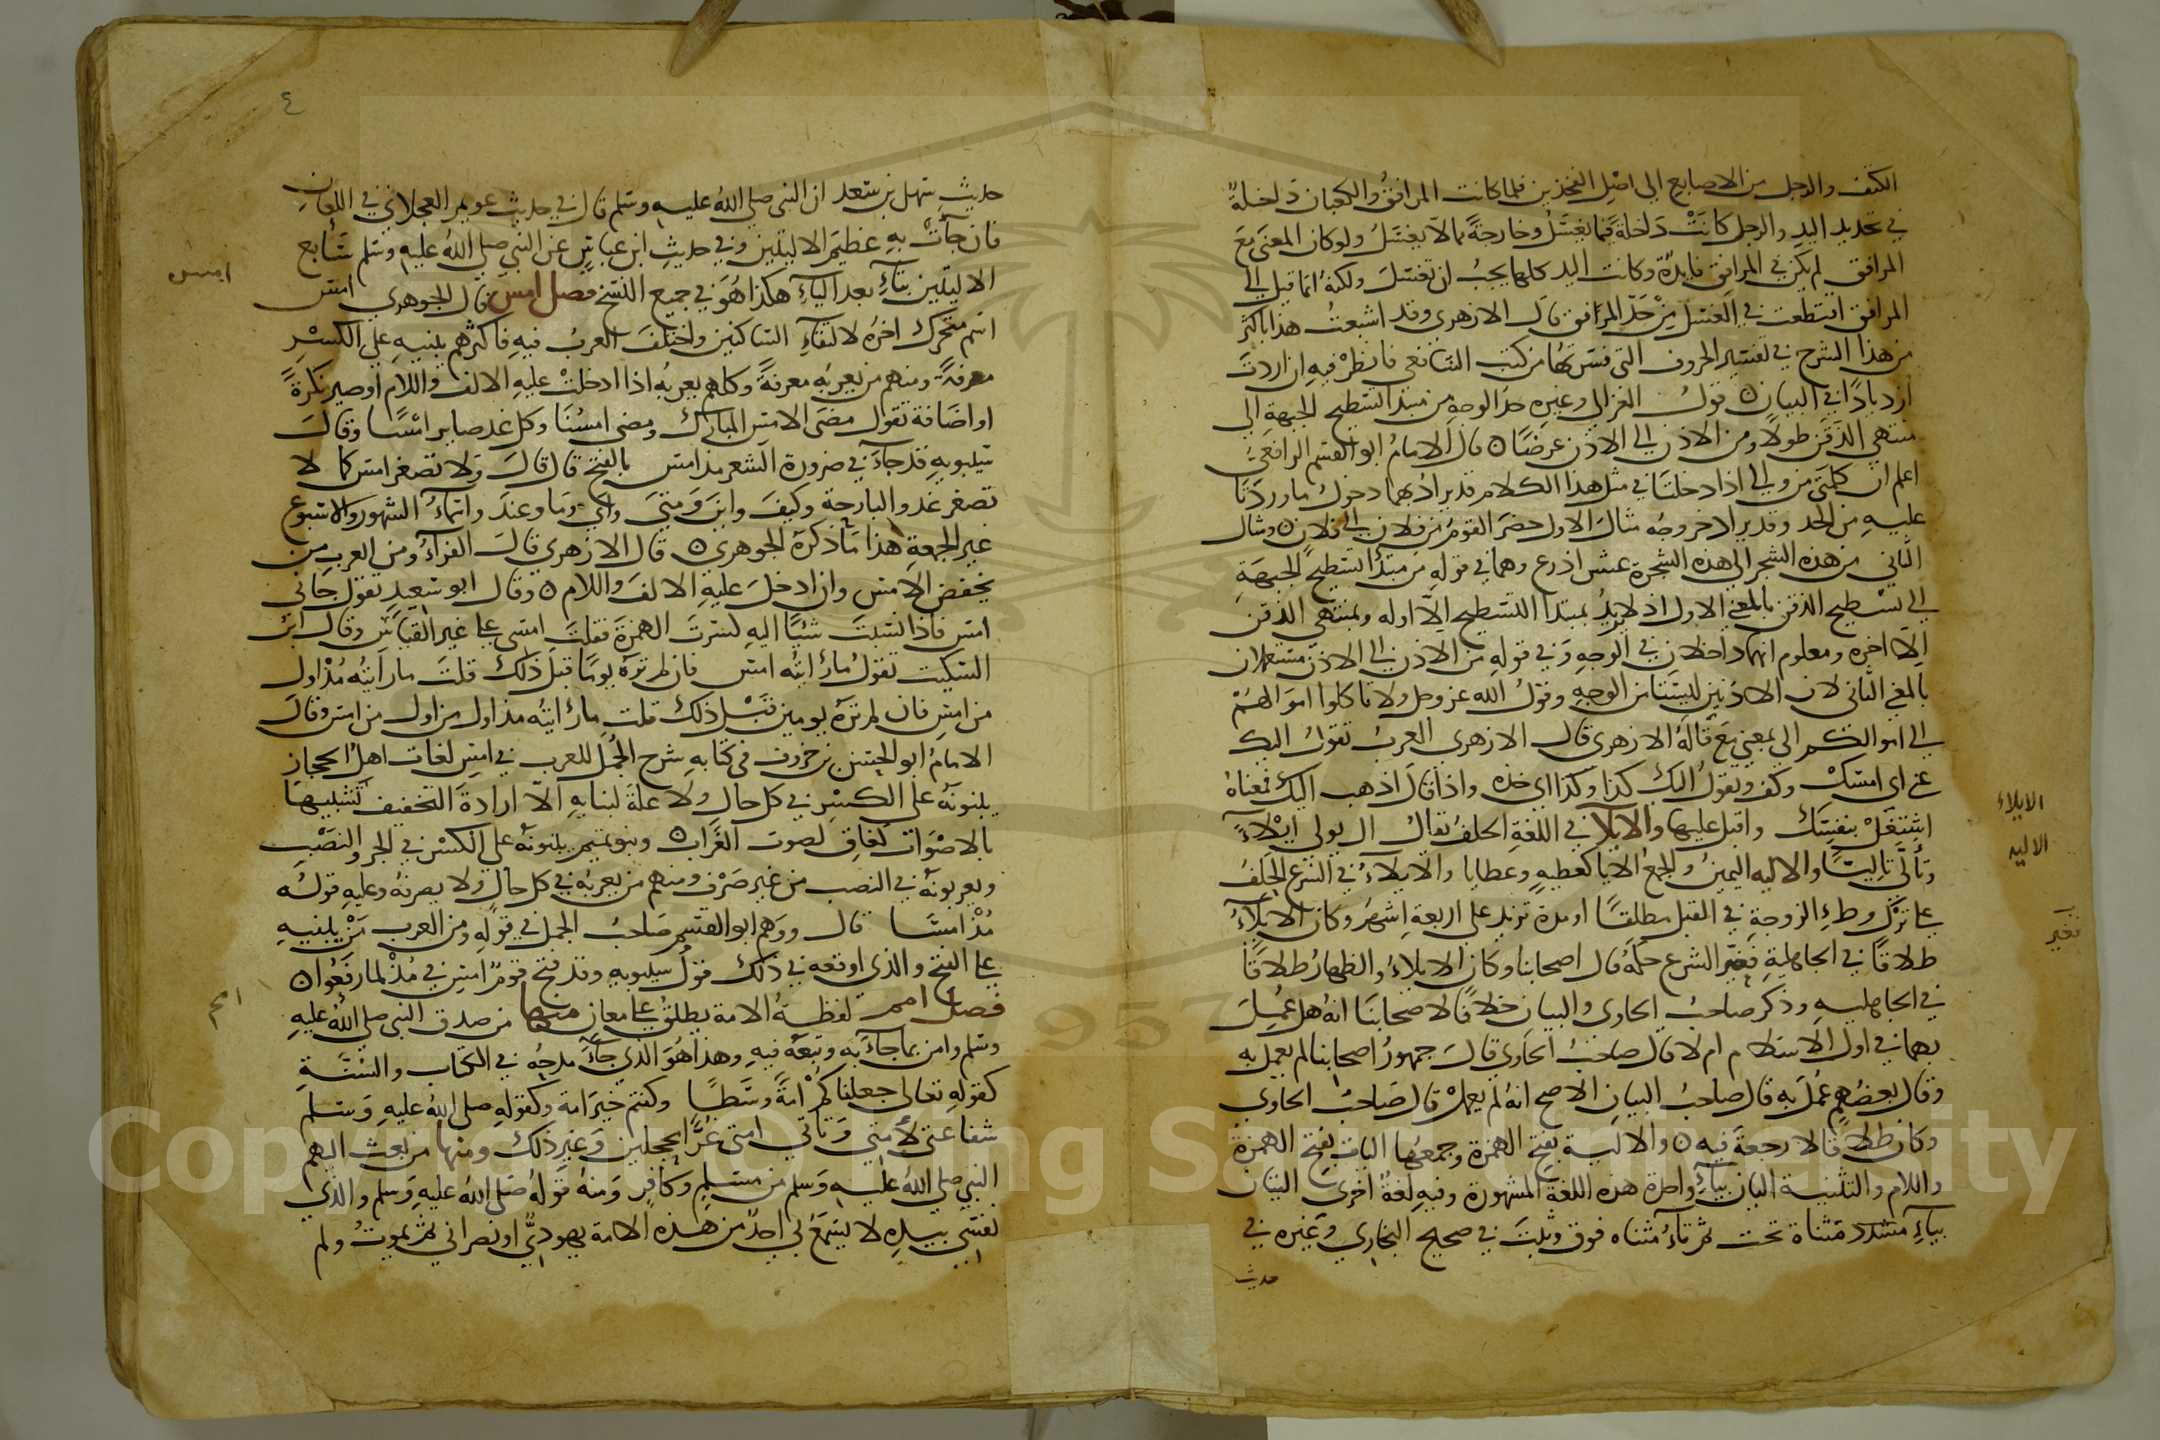 الكتف والرجل من الاصابع الى اصل الفخذين فلما كانت المرافق والكعبان داخلة
في تحديد اليد والرجل كانت داخلة فيما يغسل وخارجة مما لا يغسل ولو كان المعنى مع
المرافق لم يكن في المرافق فايدة وكانت اليد كلها يجب ان تغسل ولكنه لما قيل الى
المرافق اقتطعت في الغسل من حد المرافق قال الازهري وقد اشبعت هذا باكثر
من هذا الشرح في تفسير الحروف التي فسرتها من كتب الشافعي فانظر فيه ان اردت
ازديادا في البيان ه قول الغزالي وغيره حد الوجه من مبتدا تسطيح الجبهة الى
منتهى الذقن طولا ومن الاذن الى الاذن عرضا ه قال الامام ابو القسم الرافعي
اعلم ان كلمتي من والى اذا دخلتا في مثل هذا الكلام قد يراد بهما دخول ما وردتا
عليه من الحد وقد يراد خروجه مثال الاول حضر القوم من فلان الى فلان ه ومثال
الثاني من هذه الشجر الى هذه الشجرة عشر اذرع وهما في قوله من مبتدا تسطيح الجبهة
الى تسطيح الذقن بالمعنى الاول اذ لا يريد بمبتدا التسطيح الا اوله وبمنتهى الذقن
الا اخره ومعلوم انهما داخلان في الوجه وفي قوله من الاذن الى الاذن مستعملان
بالمعنى الثاني لان الاذنين ليستا من الوجه وقول الله عز وجل ولا تاكلوا اموالهم
الى اموالكم الى بمعنى مع قاله الازهري قال الازهري العرب تقول اليك
عني اي امسك وكف ويقول اليك كذا وكذا اي خذه واذا قال اذهب اليك فمعناه
اشتغل بنفسك واقبل عليها والايلا في اللغة الحلف يقال الى يولي ايلاء
وتالى تاليا والاليه اليمين والجمع الالايا كعطيه وعطايا والايلاء في الشرع الحلف
على ترك وطء الزوجة في القبل مطلقا او مدة تزيد على اربعة اشهر وكان الايلاء
طلاقا في الجاهلية فغير الشرع حكمه قال اصحابنا وكان الايلاء والظهار طلاقا
في الجاهليه وذكر صاحب الحاوي والبيان خلافا لاصحابنا انه هل عمل
بهما في اول الاسلام ام لا قال صاحب الحاوي قال جمهور اصحابنا لم يعمل به
وقال بعضهم عمل به قال صاحب البيان الاصح انه لم يعمل قال صاحب الحاوي
وكان طلاقا لا رجعة فيه ه والالية بفتح الهمزة وجمعها اليات بفتح الهمزة
واللام والتثنية اليان بياء واحدة هذه اللغة المشهورة وفيه لغة اخرى اليتان
بياء مشدد مثناة تحت ثم تاء مثناه فوق وثبت في صحيح البخاري وغيره في
حديث
الايلاء
الاليه
٤
حديث سهل بن سعد ان النبي صلى الله عليه وسلم قال في حديث عويمر العجلاني في اللعان
فان جات به عظيم الاليتين وفي حديث ابن عباس عن النبي صلى الله عليه وسلم سابغ
الاليتين بتاء بعد الياء هكذا هو في جميع النسخ فصل امس قال الجوهري امس
اسم متحرك اخره لالتقاء الساكنين واختلف العرب فيه فاكثرهم يبنيه على الكسر
معرفة ومنهم من يعربه معرفة وكلهم يعربه اذا ادخلت عليه الالف واللام او صير نكرة
او اضافة تقول مضى الامس المبارك ومضى امسنا وكل غد صاير امسا وقال
سيبويه قد جاء في ضرورة الشعر مذ امس بالفتح قال قال ولا تصغر امس كما لا
تصغر غد والبارحة وكيف واين ومتى واي وما وعند واسماء الشهور والاسبوع
غير الجمعة هذا ما ذكره الجوهري ه قال الازهري قال الفراء ومن العرب من
يخفض الامس وان ادخل عليه الالف واللام ه وقال ابو سعيد تقول جاني
امس فاذا نسبت شيا اليه كسرت الهمزة فقلت امسي على غير القياس وقال ابن
السكيت تقول ما رايته امس فان لم تره يوما قبل ذلك قلت ما رايته مذ اول
من امس فان لم تره يومين قبل ذلك قلت ما رايته مذ اول من اول من امس وقال
الامام ابو الحسن بن خروف في كتابه شرح الجمل للعرب في امس لغات اهل الحجاز
يبنونه على الكسر في كل حال ولا علة لبنايه الا ارادة التخفيف تشبيها
بالاصوات كغاق لصوت الغراب ه وبنو تميم يبنونه على الكسر في الجر والنصب
ويعربونه في النصب من غير صرف ومنهم من يعربه في كل حال ولا يصرفه وعليه قوله
مذ امسا قال ووهم ابو القسم صاحب الجمل في قوله ومن العرب من يبنيه
على الفتح والذي اوقعه في ذلك قول سيبويه وقد فتح قوم امس في مذ لما رفعوا ه
فصل امم لفظة الامة يطلق على معان منها من صدق النبي صلى الله عليه
وسلم وامن بما جاء به وتبعه فيه وهذا هو الذي جاء مدحه في الكتاب والسنة
كقوله تعالى جعلناكم امة وسطا وكنتم خير امة وكقوله صلى الله عليه وسلم
شفاعتي لامتي وتاتي امتي غرا محجلين وغير ذلك ومنها من بعث اليهم
النبي صلى الله عليه وسلم من مسلم وكافر ومنه قوله صلى الله عليه وسلم والذي
نفسي بيده لا يسمع بي احد من هذه الامة يهودي او نصراني ثم يموت ولم
امس
امم
Copyright © King Saud University
1957